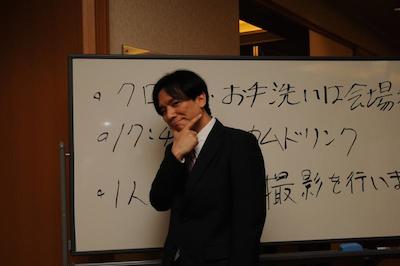 。クロ お手洗いは会場
。17:4 カムドリンク
。1人 撮影を行いま